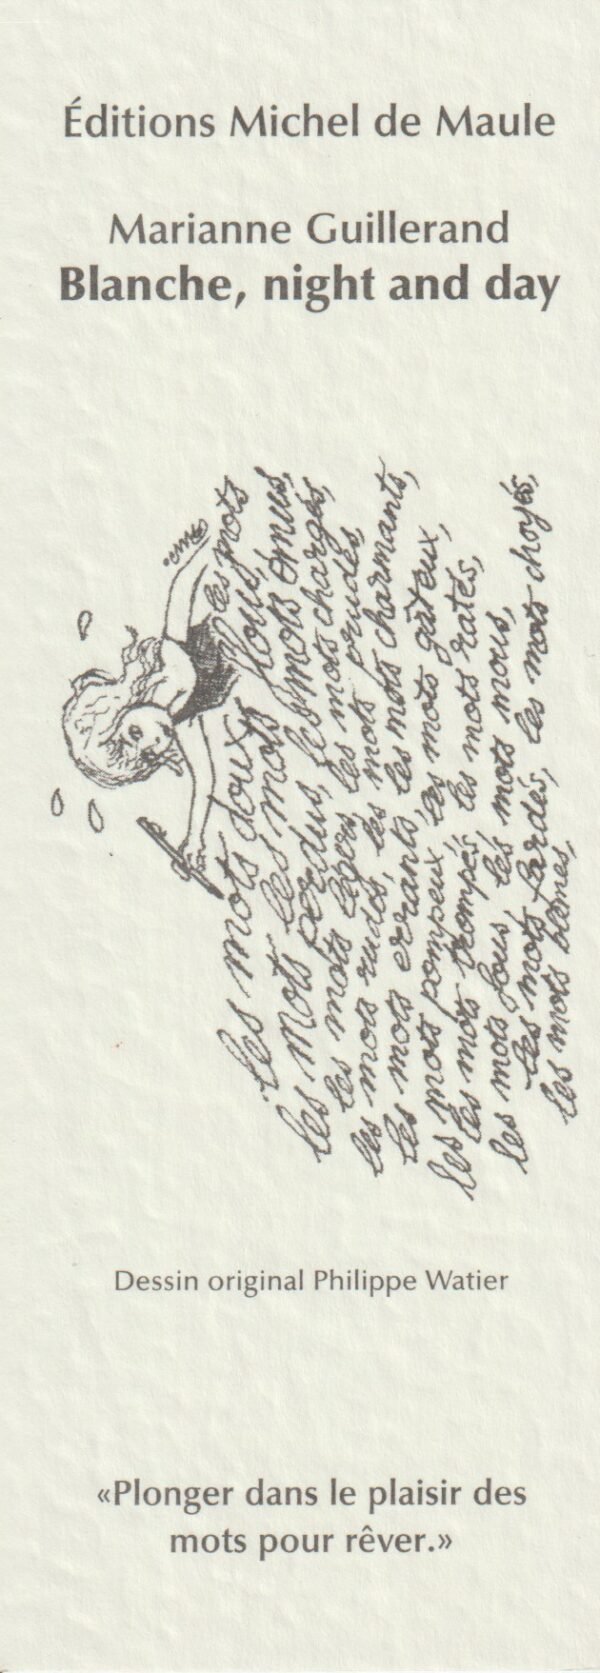 Éditions Michel de Maule
Marianne Guillerand
Blanche, night and day
Les mots doux, les mots flous,
les mots perdus, les mots émus,
les mots légers, les mots chargés,
les mots rudes, les mots prudes,
les mots errants, les mots charmants,
les mots pompeux, les mots gâteux,
les mots trompés, les mots ratés,
les mots fous, les mots mous,
les mots fardés, les mots choyés,
les mots blêmes,
Dessin original Philippe Watier
«Plonger dans le plaisir des
mots pour rêver.»